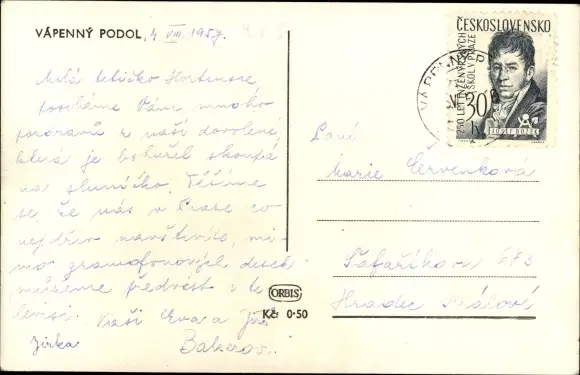 VÁPENNÝ PODOL, 4 VIII. 1957.
Milá tetičko Hortensie
posíláme Vám mnoho
pozdravů z naší dovolené,
která je bohužel skoupá
na sluníčko. Těšíme
se, že nás v Praze co
nejdřív navštívíte, mi
mo gramofonových desek
můžeme předvést i te
levisi. Vaši Eva a Jiří
Jirka
ORBIS
Kčs 0·50
ČESKOSLOVENSKO
250 LET INŽENÝRSKÝCH
ŠKOL V PRAZE
30
JOSEF BOŽEK
Paní
Marie Červenková
Šafaříkova 673
Hradec Králové